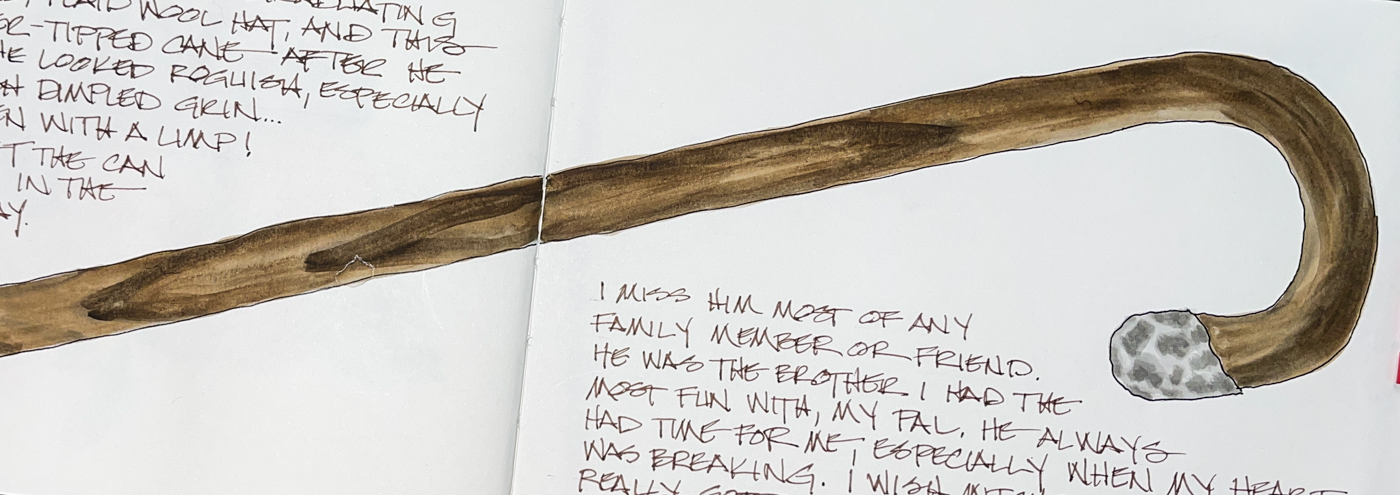 PLAID WOOL HAT, AND THIS
ER-TIPPED CANE AFTER HE
HE LOOKED ROGUISH, ESPECIALLY
DIMPLED GRIN...
EN WITH A LIMP!
T THE CAN
IN THE
AY.
I MISS HIM MOST OF ANY
FAMILY MEMBER OR FRIEND.
HE WAS THE BROTHER I HAD THE
MOST FUN WITH, MY PAL. HE ALWAYS
HAD TIME FOR ME, ESPECIALLY WHEN MY HEART
WAS BREAKING. I WISH
REALLY